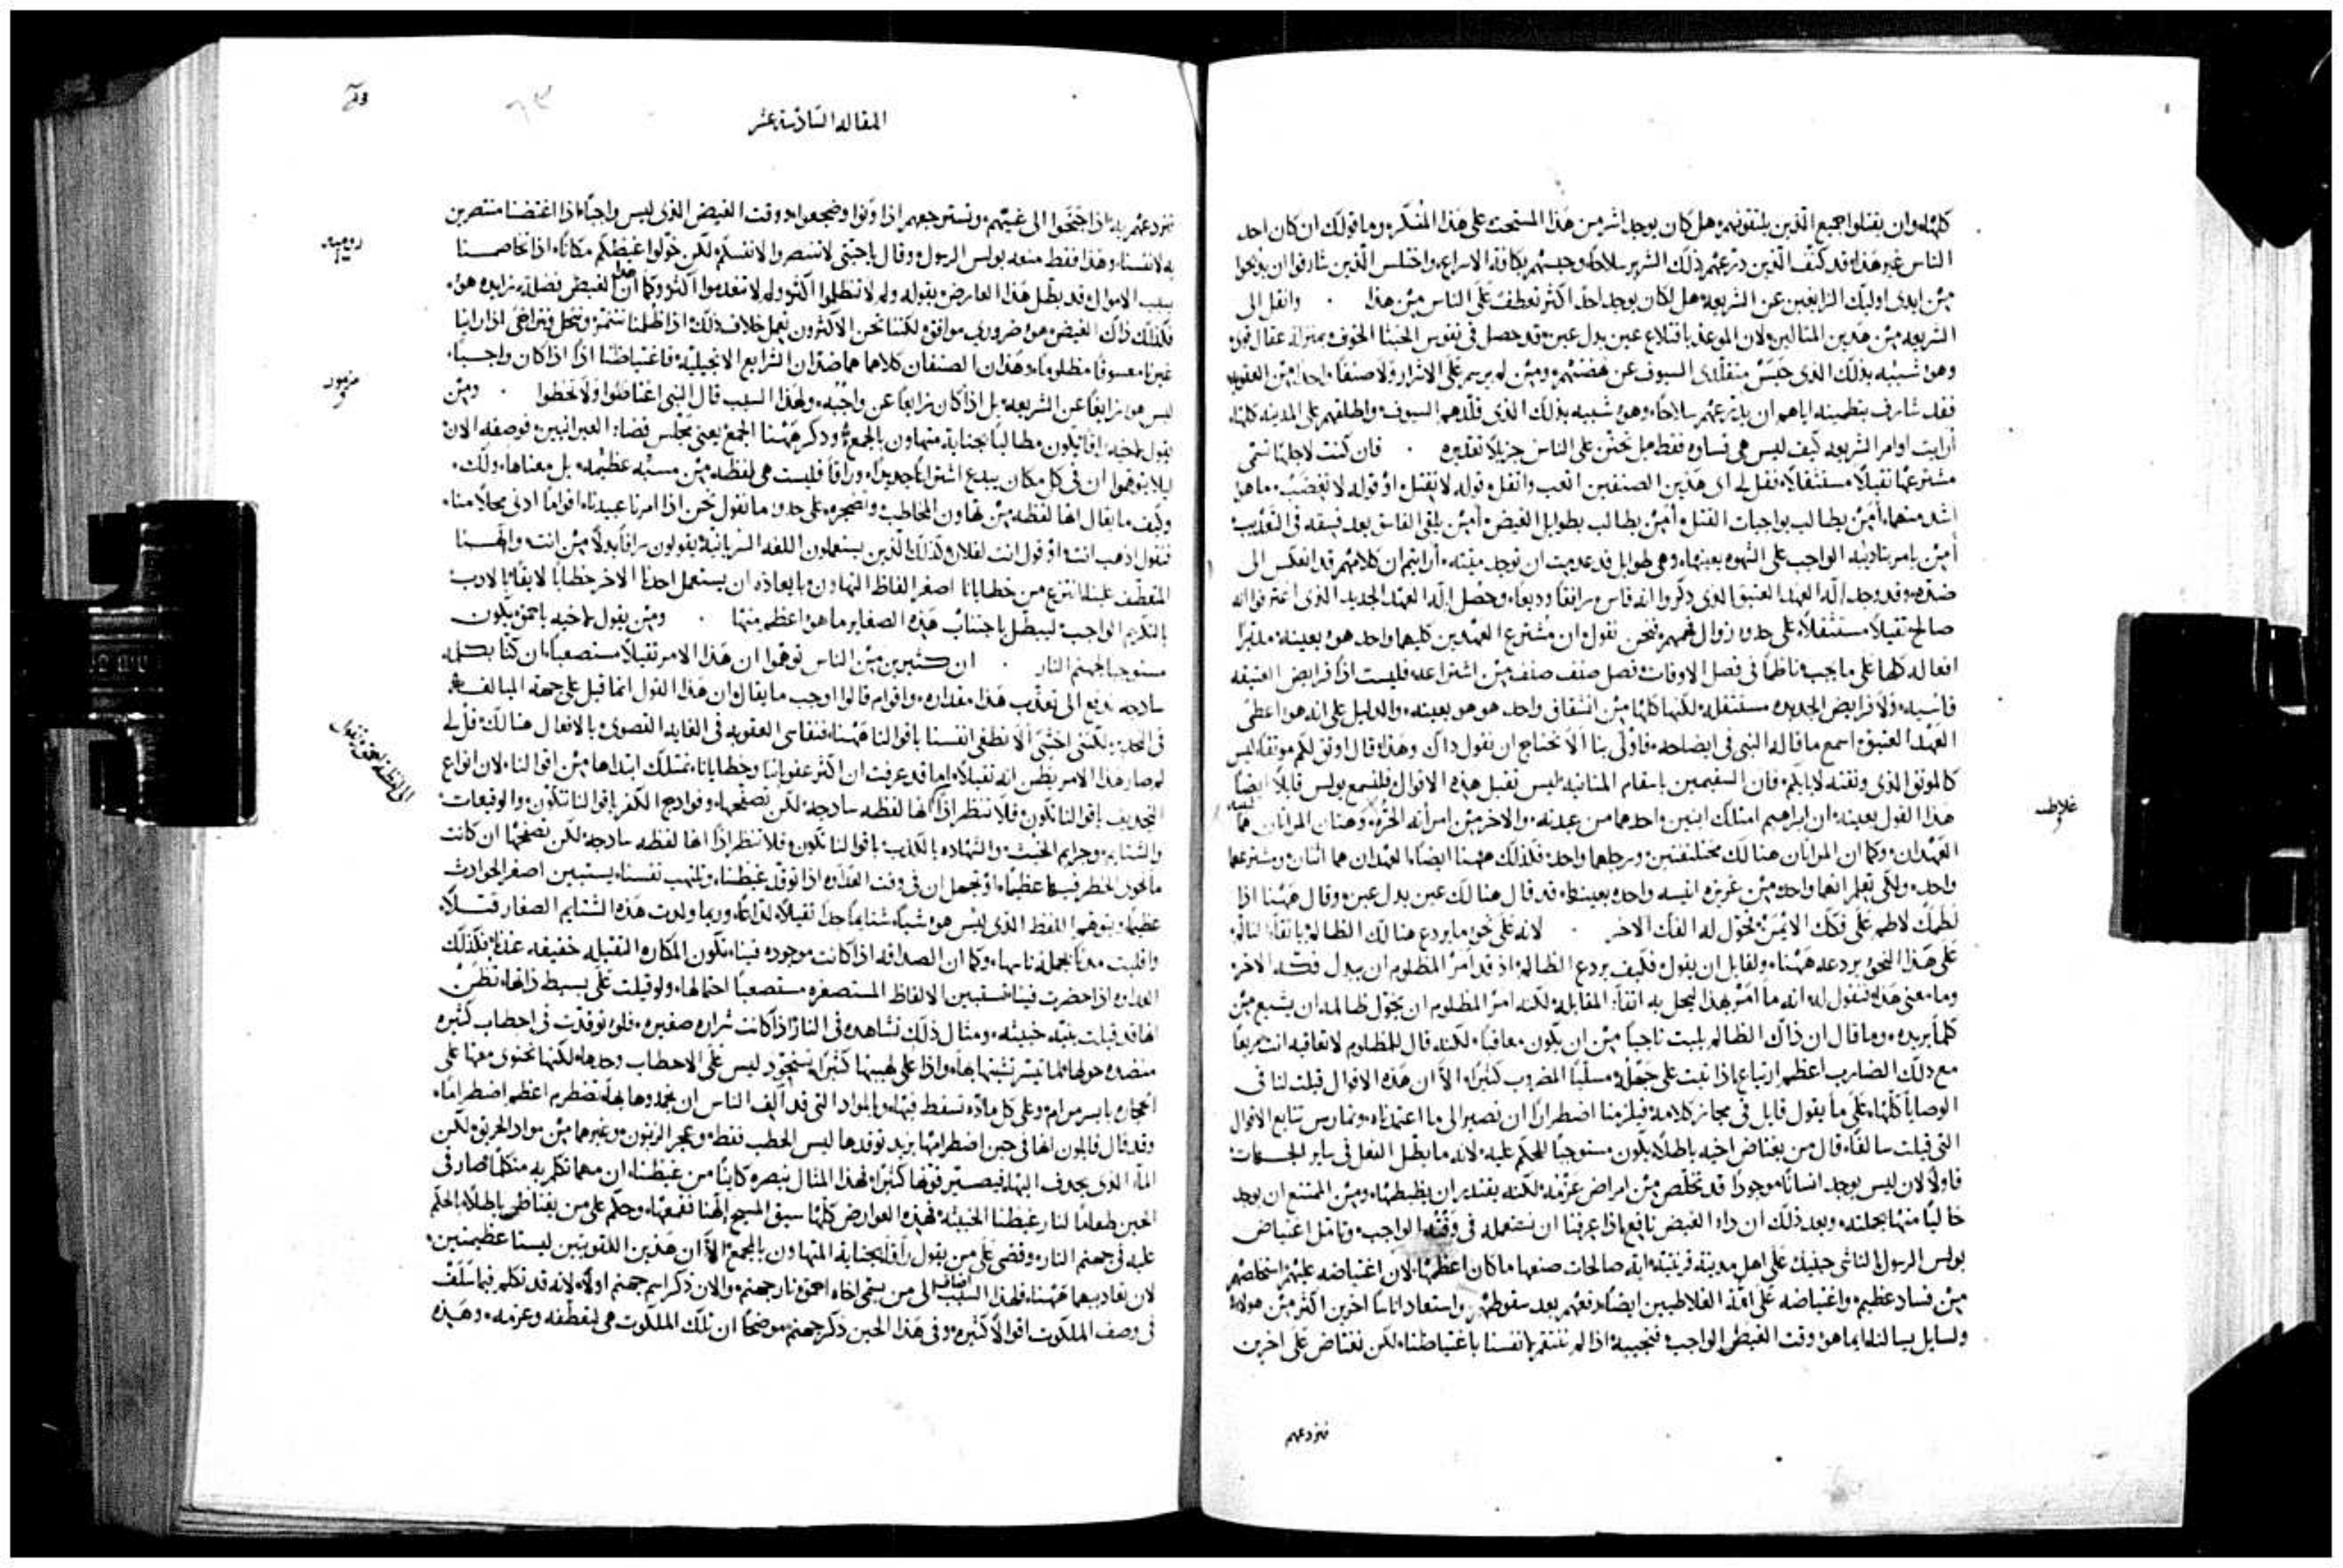 كلها وان يقتلوا جميع الذين يلتقونهم هل كان يوجد اشر من هذا المستحث على هذا المنكر وما قولك ان كان احد
الناس غير هذا قد كتف الذين درعهم ذلك الشرير سلاحا وحبسهم بكافة الاسراع واختلس الذين شارفوا ان يذبحوا
من ايدي اوليك الزايغين عن الشريعه هل كان يوجد احد اكثر تعطف على الناس من هذا وانقل الى
الشريعه من هذين المثالين لان الموعد باقتلاع عين بدل عين قد حصل في نفوس الخبثا الخوف بمنزلة عقال قوي
وهو شبيه بذلك الذي حبس متقلدي السيوف عن نهضتهم ومن لم يرسم على الاشرار ولا صنفا واحدا من العقوبه
فقد شارف بتطمينه اياهم ان يدرعهم سلاحا وهو شبيه بذلك الذي قلدهم السيوف واطلقهم على المدينه كلها
أرايت اوامر الشريعه كيف ليس هي قساوه فقط بل تحنن على الناس جزيلا تقديره فان كنت لاجلها تسمى
مشترعها ثقيلا مستثقلا فقل لي اي هذين الصنفين اتعب واثقل قوله لا تقتل او قوله لا تغضب ما هو
اشد منهما أمن يطالب بواجبات القتل أمن يطالب بطوايل الغيض أمن يلقي الفاسق بعد فسقه في التعذيب
أمن يامر بتاديبه الواجب على الشهوه بعينها وهي طوايل قد عدمت ان توجد ميته أرايتم ان كلامهم قد انعكس الى
ضده وقد وجد إله العهد العتيق الذي ذكروا انه قاس رافقا وديعا وحصل إله العهد الجديد الذي اعترفوا انه
صالح ثقيلا مستثقلا على حدو زوال فهمهم فنحن نقول ان مشترع العهدين كليهما واحد هو بعينه مدبرا
افعاله كلها على ما يجب ناظما في فصل الاوقات فصل صنف صنف من اشتراعه فليست اذا فرايض العتيقه
قاسيه ولا فرايض الجديده مستثقله لكنها كلها من اشفاق واحد هو هو بعينه والدليل على انه هو اعطى
العهد العتيق اسمع ما قاله النبي في ايضاحه فاولى بنا ألا نحتاج ان نقول ذاك وهذا قال اوثق لكم موثقا ليس
كالموثق الذي وثقته لابايكم فان السقيمين باسقام المنانيه ليس تقبل هذه الاقوال فلنسمع بولس قايلا ايضا
هذا القول بعينه ان ابراهيم امتلك ابنين واحدهما من عبدته والاخر من امرأته الحره وهتان المراتان هما
العهدان وكما ان المراتان هنالك مختلفتين ورجلهما واحد فكذلك ههنا ايضا العهدان هما اثنان ومشترعهما
واحد ولكي تعلم انهما واحد من غريزه انيسه واحده بعينها قد قال هنالك عين بدل عين وقال ههنا اذا
لطمك لاطم على فكك الايمن تحول له الفك الاخر لانه على نحو ما يردع هنالك الظالم
على هذا النحو يردعه ههنا ولقايل ان يقول فكيف يردع الظالم اذ قد امر المظلوم ان يبدل فكه الاخر
وما معنى هذا فنقول له انه ما امر بهذا ليحل به المقابله لكنه امر المظلوم ان يخول ظالمه ان يشبع من
كلما يريده وما قال ان ذاك الظالم يلبث ناجيا من ان يكون معاقبا لكنه قال للمظلوم لا تعاقبه انت
مع ذلك الضارب اعظم ارتياع اذا ثبت على جهله مسلبا المضروب كثيرا الا ان هذه الاقوال قيلت لنا في
الوصايا كلها على ما يقول قايل في مجاز كلامه فيلزمنا اضطرارا ان نصير الى ما اعتمدناه ونمارس تتابع الاقوال
التي قيلت سالفا قال من يغتاض اخيه باطلا يكون مستوجبا للحكم عليه لانه ما يطل الفعل في ساير الجهات
فاولا لان ليس يوجد انسانا موجودا قد تخلص من امراض عزمه لكنه يقتدر ان يظبطها ومن الممتنع ان يوجد
خاليا منها بجملته وبعد ذلك ان دا الغيض نافع اذا عرفنا ان نستعمله في وقته الواجب وتامل اغتياض
بولس الرسول الناشي حينيك على اهل مدينة قرنتية اية صالحات صنعها ما كان اعظمها لان اغتياضه عليهم استخلصهم
من فساد عظيم واغتياضه على امة الغلاطيين ايضا رفعهم بعد سقوطهم واستعاد اناسا اخرين اكثر من هولاء
ولسايل يسالنا ايما هو وقت الغيظ الواجب فنجيبه اذا لم ننتقم لانفسنا باغتياضنا لكن نغتاض على اخرين
فنردعهم
غلاطيه
المقاله السادسة عشر
فنردعهم به اذا جنحوا الى غيتهم ونسترجعهم اذا ونوا وضجعوا ووقت الغيض الذي ليس واجبا اذا اغتضنا منتصرين
به لانفسنا وهذا فقط منعه بولس الرسول وقال يا احبتي لا تنتصروا لانفسكم لكن خولوا غيظكم مكانا اذا تخاصمنا
بسبب الاموال قد بطل هذا العارض بقوله ولم لا تظلموا اكثر ولم لا تعدموا اكثر وكما ان هذا الغيظ فضلة زايده هو
فكذلك ذاك الغيض هو ضروري موافق لكننا نحن الاكثرون نعمل خلاف ذلك اذا ظلمنا نتنمر وننحل ونتراخى اذا راينا
غيرنا معسوفا مظلوما وهذان الصنفان كلاهما هما ضدان الشرايع الانجيليه فاغتياضنا اذا اذا كان واجبا
ليس هو زايغا عن الشريعه بل اذا كان زايغا عن واجبه ولهذا السبب قال النبي اغتاضوا ولا تخطوا ومن
يقول لاخيه راقا يكون مطالبا بجناية متهاون بالجمع وذكر ههنا الجمع يعني مجلس قضاة العبرانيين فوصفه الان
ليلا يتوهموا ان في كل مكان يبدع اشتراعا جديدا وراقا فليست هي لفظه من مسبه عظيمه بل معناها ولك
وكيف ما يقال انها لفظه من تهاون المخاطب وتضجره على حدو ما نقول نحن اذا امرنا عبيدنا اقواما ادنى محلا منا
فنقول اذهب انت او قول انت لفلان وكذلك الذين يستعملون اللغه السريانيه يقولون راقا بدلا من انت والهنا
المتعطف علينا انتزع من خطايانا اصغر الفاظ التهاون بايعاذه ان يستعمل احدنا الاخر خطابا لايقا بالادب
بالتكريم الواجب ليبطل باجتناب هذه الصغاير ما هو اعظم منها ومن يقول لاخيه يا احمق يكون
مستوجبا لجهنم النار ان كثيرين من الناس توهموا ان هذا الامر ثقيلا مستصعبا ان كنا بكلمه
ساذجه نوقع الى تعذيب هذا مقداره واقوام قالوا اوجب ما يقال ان هذا القول انما قيل على جهة المبالغه
في التحذير لكنني اخشى ألا نطغي انفسنا باقوالنا ههنا فنقاسي العقوبه في الغايه القصوى بالافعال هنالك قل لي
لم صار هذا الامر يظن انه ثقيلا اما قد عرفت ان اكثر عقوباتنا وخطايانا تمتلك ابتداها من اقوالنا لان انواع
التجديف باقوالنا تكون فلا تنظر اذا انها لفظه ساذجه لكن تصفحها وفوادح الكفر باقوالنا تكون والوقيعات
والشتايم وجرايم الحنث والشهاده بالكذب باقوالنا تكون فلا تنظر اذا انها لفظه ساذجه لكن تصفحها ان كانت
ما تحوي الخطر فيها عظيما او تجهل ان في وقت العداوه اذا توقد غيظنا وتلهب نفسنا يستبين اصغر الحوادث
عظيما ويتوهم اللفظ الذي ليس هو شيا شنايعا جدا ثقيلا لذاعا وربما ولدت هذه الشتايم الصغار قتلا
واقلبت مدنا بجملة ناسها وكما ان الصداقه اذا كانت موجوده فينا تكون المكاره الثقيله خفيفه عندنا فكذلك
العداوه اذا حضرت فينا فتستبين الالفاظ المستصغره مستصعبا احتمالها ولو قيلت على بسيط ذاتها تظن
انها قد قيلت بنيه خبيثه ومثال ذلك نشاهده في النار اذا كانت شراره صغيره فلو توقدت في احطاب كثيره
منضده حولها لما تيسر تشبثها بها واذا علي لهيبها كثيرا يستحوذ ليس على الاحطاب وحدها لكنها تحتوي معها على
الحجاره بايسر مرام وعلى كل ماده تسقط فيها وبالمواد التي قد الف الناس ان يخمدوها بها تضطرم اعظم اضطراما
وقد قال قايلون انها في حين اضطرامها يزيد توقدها ليس الحطب فقط وعجر الزيتون وغيرهما من مواد الحريق لكن
الماء الذي يحذف اليها فيصير قوتها كثيرا وبهذا المثال نبصره كاينا من غيظنا ان مهما تكلم به متكلما صار في
الحين طعاما لنار غيظنا الخبيثه فهذه العوارض كلها سبق المسيح الهنا فقمعها وحكم على من يغتاظ باطلا بالحكم
عليه في جهنم النار وقضى على من يقول راقا بجناية المتهاون بالجمع الا ان هذين اللقوبتين ليستا عظيمتين
لان تعاذيبهما ههنا فلهذا السبب اضاف الى من يسمى اخاه احمق نار جهنم والان ذكر اسم جهنم اولا لانه قد تكلم فيما سلف
في وصف الملكوت اقوالا كثيره وفي هذا الحين ذكر جهنم موضحا ان تلك الملكوت هي لتعطفه وعزمه وهذه
روميه
مزمور